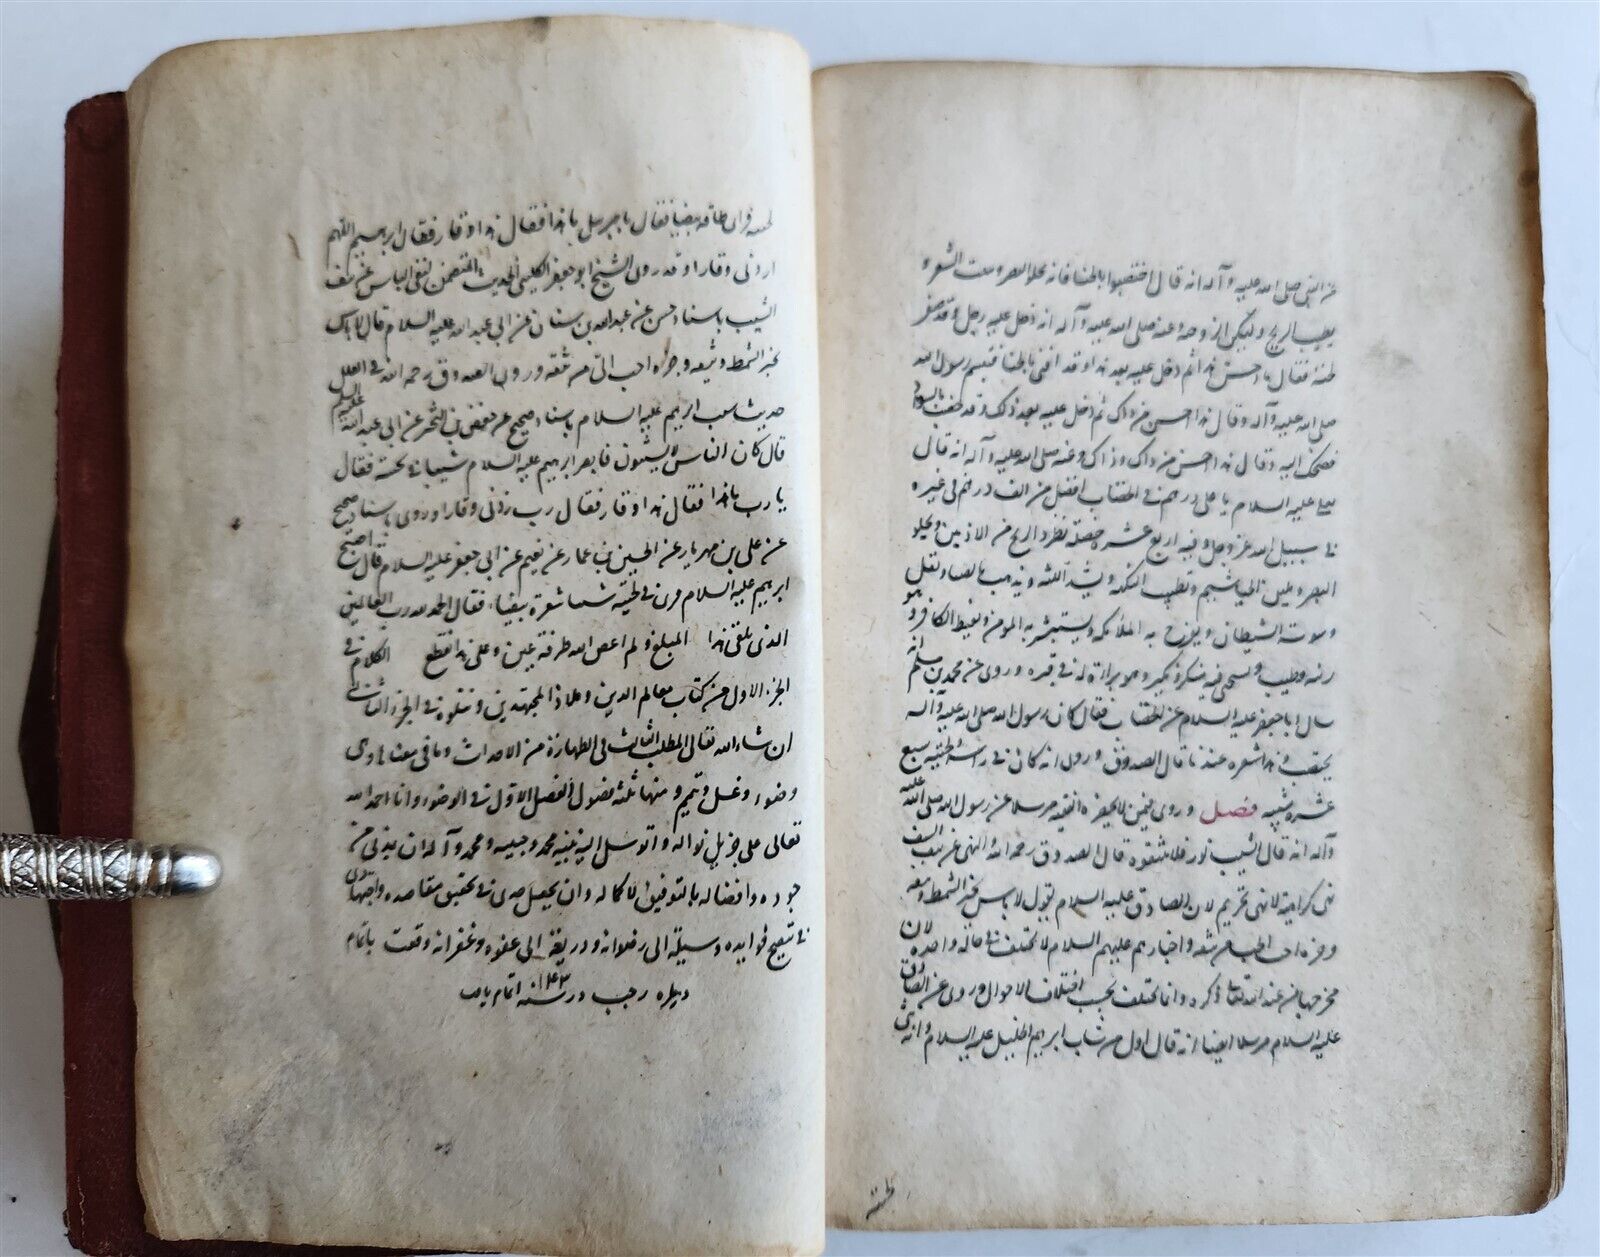 عن النبي صلى الله عليه وآله انه قال اختضبوا بالحنا فانه يجلو البصر وينبت الشعر و
يطيب الريح ويسكن الزوجة وعنه صلى الله عليه وآله انه دخل عليه رجل وقد صفر
لحيته فقال ما احسن هذا ثم دخل عليه بعد هذا وقد اقنى بالحنا فتبسم رسول الله
صلى الله عليه وآله وقال هذا احسن من ذاك ثم دخل عليه بعد ذلك وقد خضب بالسواد
فضحك اليه وقال هذا احسن من ذاك وذاك وعنه صلى الله عليه وآله انه قال
لعلي عليه السلام يا علي درهم في الخضاب افضل من الف درهم في غيره
في سبيل الله عز وجل وفيه اربع عشرة خصلة يطرد الريح من الاذنين ويجلو
البصر ويلين الخياشيم ويطيب النكهة ويشد اللثة ويذهب بالضنا ويقل
وسوسة الشيطان ويفرح به الملائكة ويستبشر به المؤمن ويغيظ الكافر وهو
زينة وطيب ويستحيي منه منكر ونكير وهو براءة له في قبره وروى عن محمد بن مسلم انه
سال ابا جعفر عليه السلام عن الخضاب فقال كان رسول الله صلى الله عليه وآله
يختضب وهذا شعره عندنا قال الصدوق وروى انه كان في راسه ولحيته سبع
عشرة شيبة فصل وروى في من لا يحضره الفقيه مرسلا عن رسول الله صلى الله عليه
وآله انه قال الشيب نور فلا تنتفوه قال الصدوق رحمه الله والنهي عن نتف الشيب
نهي كراهية لا نهي تحريم لان الصادق عليه السلام يقول لا باس بجز الشمط ونتفه
وجزه احب الي من نتفه واخبارهم عليهم السلام لا تختلف في حالة واحدة لان
مخرجها من عند الله تعالى ذكره وانما تختلف بحسب اختلاف الاحوال وروى عن الصادق
عليه السلام مرسلا ايضا انه قال اول من شاب ابرهيم الخليل عليه السلام وانه ثنى
لحيته
لحيته فراى طاقة بيضاء فقال يا جبرئيل ما هذا فقال هذا وقار فقال ابرهيم اللهم
زدني وقارا وقد روى الشيخ ابو جعفر الكليني الحديث المتضمن لنفي الباس عن نتف
الشيب باسناد حسن عن عبد الله بن سنان عن ابي عبد الله عليه السلام قال لا باس
بجز الشمط ونتفه وجزه احب الي من نتفه وروى الصدوق رحمه الله في العلل
حديث شيب ابرهيم عليه السلام باسناد صحيح عن حفص بن البختري عن ابي عبد الله عليه السلم
قال كان الناس لا يشيبون فابصر ابرهيم عليه السلام شيبا في لحيته فقال
يا رب ما هذا فقال هذا وقار فقال رب زدني وقارا وروى باسناد صحيح
عن علي بن مهزيار عن الحسين بن عمار عن نعيم عن ابي جعفر عليه السلام قال اصبح
ابرهيم عليه السلام فراى في لحيته شيبا شعرة بيضاء فقال الحمد لله رب العالمين
الذي بلغني هذا المبلغ ولم اعص الله طرفة عين وعلى هذا قطع الكلام في
الجزء الاول من كتاب معالم الدين وملاذ المجتهدين ونتلوه في الجزء الثاني
ان شاء الله تعالى المطلب الثالث في الطهارة من الاحداث وما في معناها وهي
وضوء وغسل وتيمم ومنها ثلثة فصول الفصل الاول في الوضوء وانا احمد الله
تعالى على جزيل نواله واتوسل اليه بنبيه محمد وحبيبه ومحمد وآله ان يمدني من
جوده وافضاله بالتوفيق لاكماله وان يجعل جدي في تحقيق مقاصده واجتهادي
في تنقيح فوايده وسيلة الى رضوانه وذريعة الى عفوه وغفرانه وقعت باتمام
در سنه ١٢٤٣ اتمام يافت